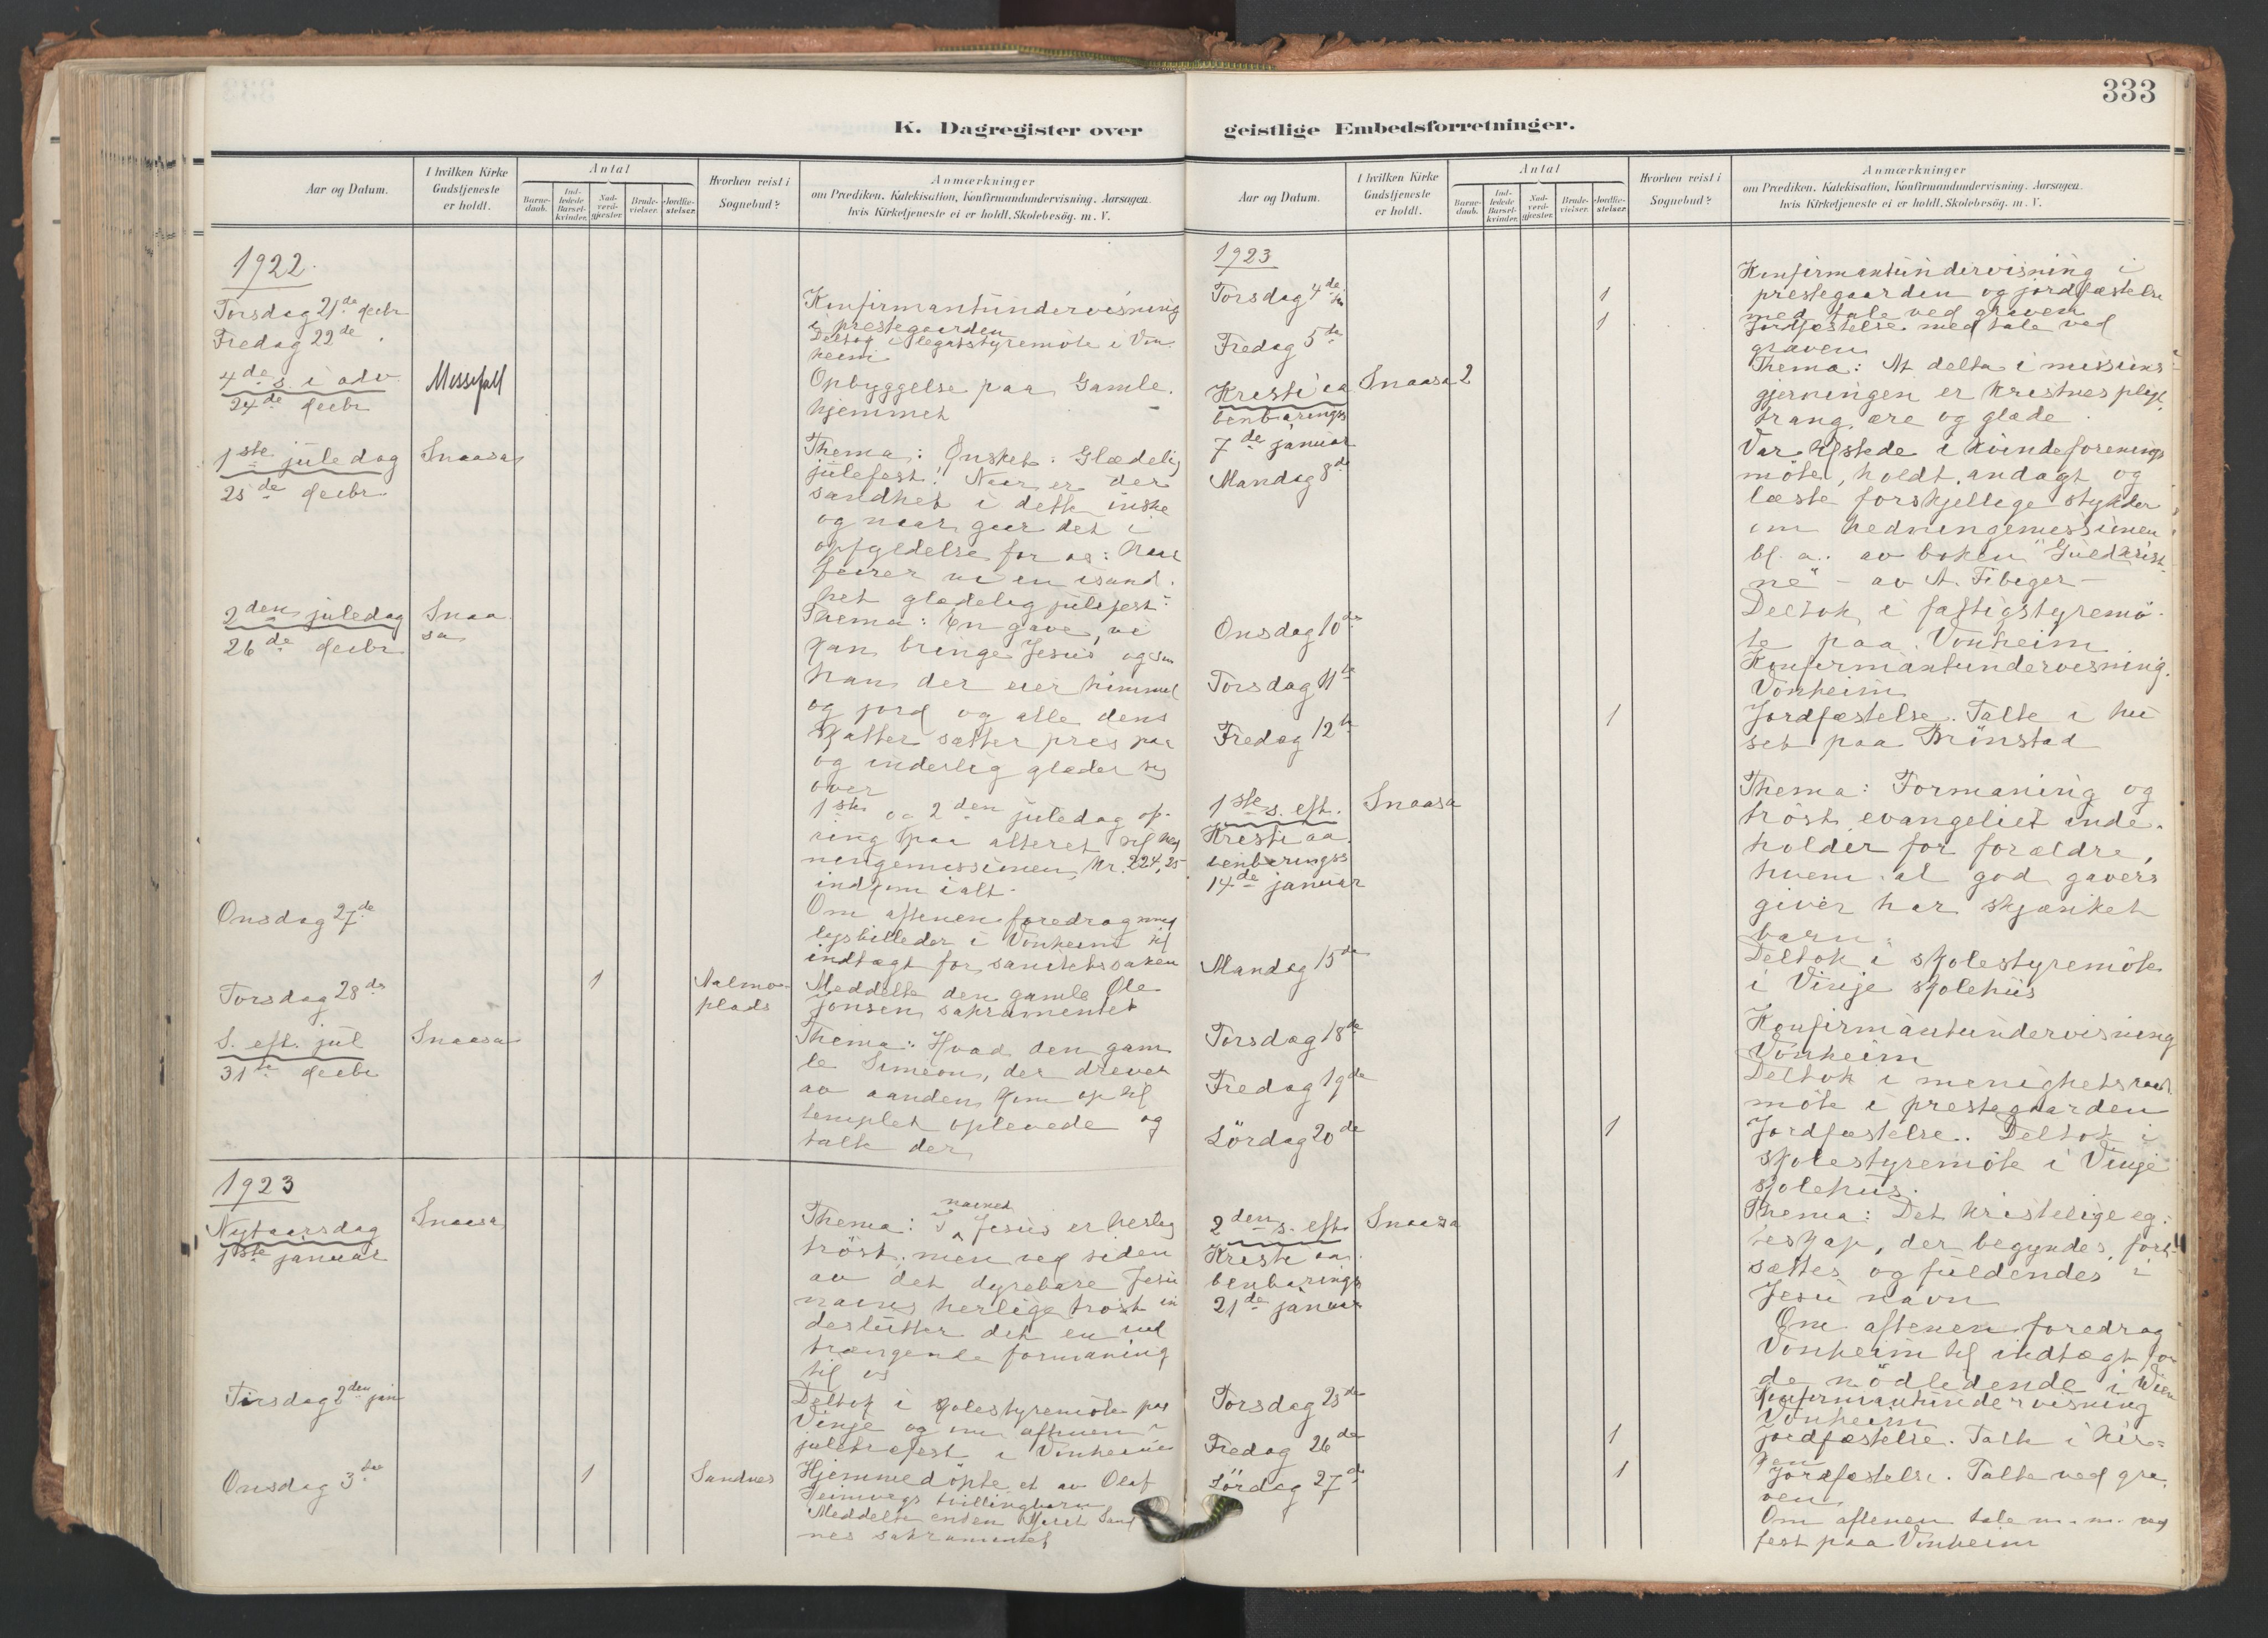 333
K. Dagregister over
geistlige Embedsforretninger.
Aar og Datum.
I hvilken Kirke Gudstjeneste er holdt.
Antal
Barnedaab.
Indledede Barselkvinder.
Nadverdgjester.
Brudevielser.
Jordfæstelser.
Hvorhen reist i Sognebud?
Anmærkninger
om Prædiken, Katekisation, Konfirmandundervisning, Aarsagen,
hvis Kirketjeneste ei er holdt, Skolebesög. m. V.
1922.
Torsdag 21de decbr
Konfirmantundervisning
i prestegaarden
Fredag 22de
Deltog i legatstyremöte i Von
heim
4de s. i adv
24de decbr
Messefall
Opbyggelse paa Gamle-
hjemmet
1ste juledag
25de decbr
Snaasa
Thema: Ønsket: Glædelig
julefest! Naar er der
sandhet i dette önske
og naar gaar det i
opfyldelse for os:
feirer vi en i sand-
het glædelig julefest
2den juledag
26de decbr
Snaa-
sa
Thema: En gave, vi
kan bringe Jesus og som
han der eier himmel
og jord og alle dens
skatter sætter pris paa
og inderlig glæder sig
over
1ste og 2den juledag of-
ring paa alteret til hed
ningemissionen, kr. 224,25
indkom ialt.
Onsdag 27de
Om aftenen foredrag med
lysbilleder i Vonheim til
indtægt for sanitetssaken
Torsdag 28de
1
Nalmo-
plads
Meddelte den gamle Ole
Jonsen sakramentet
S. eft. jul
31te decbr
Snaasa
Thema: Hvad den gam
le Simeon, der dreven
av aanden kom op til
templet oplevede og
talte der
1923
Nytaarsdag
1ste januar
Snaasa
Thema: I navnet Jesus er herlig
tröst; men ved siden
av det dyrebare Jesu
navns herlige tröst in
deslutter det en ind
trængende formaning
til os
Tirsdag 2den jan
Deltok i skolestyremöte paa
Vinje og om aftenen i
juletræfest i Vonheim
Onsdag 3die
1
Sandnes
Hjemmedöpte et av Olaf
Heimvegs tvillingbarn
Meddelte enken Marit Sand
nes sakramentet
Aar og Datum.
I hvilken Kirke Gudstjeneste er holdt.
Antal
Barnedaab.
Indledede Barselkvinder.
Nadverdgjester.
Brudevielser.
Jordfæstelser.
Hvorhen reist i Sognebud?
Anmærkninger
om Prædiken, Katekisation, Konfirmandundervisning, Aarsagen,
hvis Kirketjeneste ei er holdt, Skolebesög. m. V.
1923
Torsdag 4de
1
Konfirmantundervisning i
prestegaarden og jordfæstelse
med tale ved graven
Fredag 5te
1
Jordfæstelse med tale ved
graven
Kristi aa
benbarings
7de januar
Snaasa
2
Thema: At delta i missions-
gjerningen er kristnes pligt,
trang, ære og glæde.
Mandag 8de
Var tilstede i kvindeforenings
möte, holdt andagt og
læste forskjellige stykker
om hedningemissionen
bl. a. av boken "Guldkrist
ne" - av A. Fibiger -
Onsdag 10de
Deltok i fattigstyremö-
te paa Vonheim
Torsdag 11te
Konfirmantundervisning.
Vonheim
Fredag 12te
1
Jordfæstelse. Talte i hu
set paa Brönstad
1ste s. eft.
Kristi aa
benbarings
14de januar
Snaasa
Thema: Formaning og
tröst evangeliet inde-
holder for forældre,
hvem al god gavers
giver har skjænket
barn.
Mandag 15de
Deltok i skolestyremöte
i Vinje skolehus
Torsdag 18de
Konfirmantundervisning
Vonheim
Fredag 19de
Deltok i menighetsraad
möte i prestegaarden
Lördag 20de
1
Jordfæstelse. Deltok i
skolestyremöte i Vinje
skolehus.
2den s. eft
Kristi aa
benbarings
21de januar
Snaasa
Thema: Det kristelige eg-
teskap, der begyndes, fort-
sættes og fuldendes i
Jesu navn
Om aftenen foredrag
Vonheim til indtægt for
de nödledende i Wien
Torsdag 25de
Konfirmantundervisning
Vonheim
Fredag 26de
1
Jordfæstelse. Talte i kir=
ken
Lördag 27de
1
Jordfæstelse. Talte ved gra-
ven
Om aftenen tale m. m. ved
fest paa Vonheim